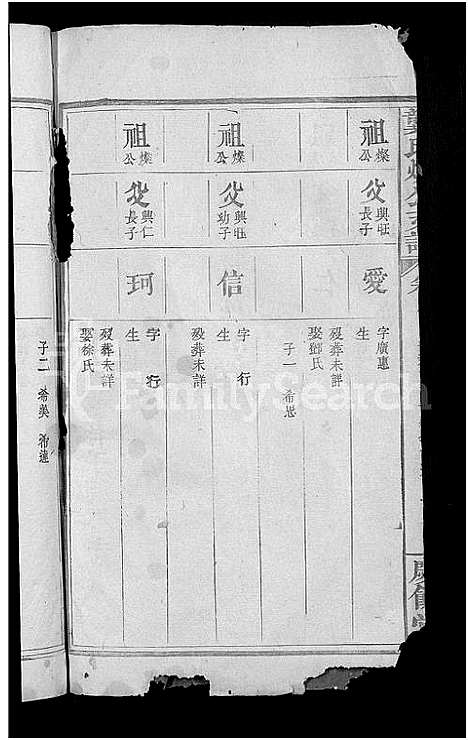 祖 燦公
父 興旺長子
愛
字廣惠
生
歿葬未詳
娶鄧氏
子一 希思
祖 燦公
父 興旺幼子
信
字 行
生
歿葬未詳
祖 燦公
父 興仁長子
珂
字 行
生
歿葬未詳
娶徐氏
子二 希奐 希蓮
FamilySearch